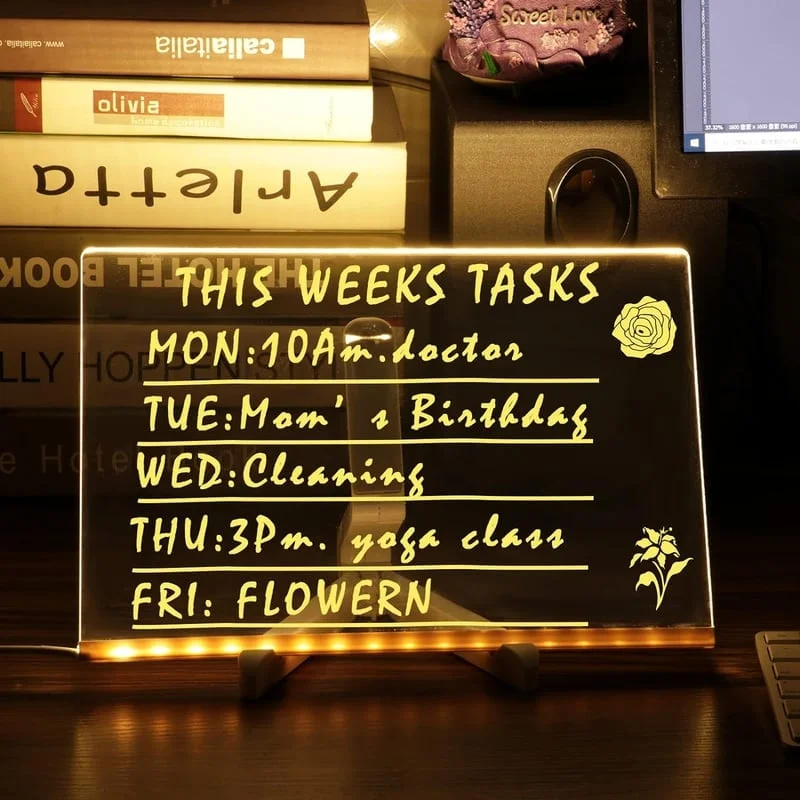 Sweet Love
www.caliaitalia
caliaitalia
olivia
home decoration
Arletta
THE HOTEL BOOK
LLY HOPPEN STYL
e Hotel Book
THIS WEEKS TASKS
MON:10Am.doctor
TUE:Mom's Birthdag
WED:Cleaning
THU:3Pm. yoga class
FRI: FLOWERN